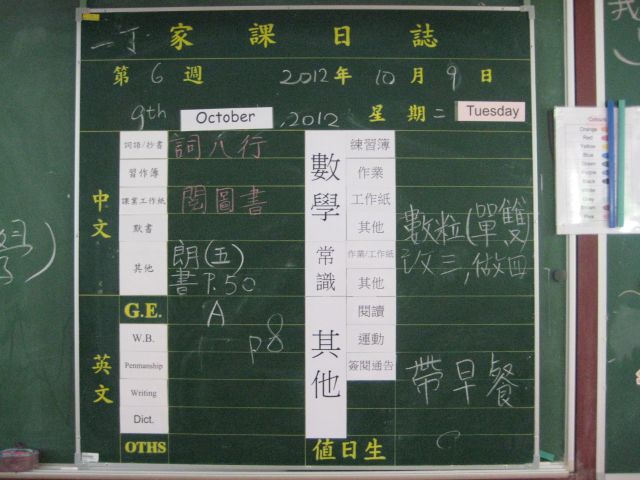 一丁 家課日誌
第 6 週 2012年 10月 9日
9th October, 2012 星期二 Tuesday
中文
詞語/抄書 詞八行
習作簿
課業工作紙 閱圖書
默書
其他 朗(五)
書 P.50
英文
G.E. A
W.B. p8
Penmanship
Writing
Dict.
OTHS
數學
練習簿
作業
工作紙
其他 數粒(單雙)
改三,做四
常識
作業/工作紙
其他
其他
閱讀
運動
簽閱通告 帶早餐
值日生
Orange
Red
Yellow
Blue
Green
Purple
Black
White
Grey
Pink